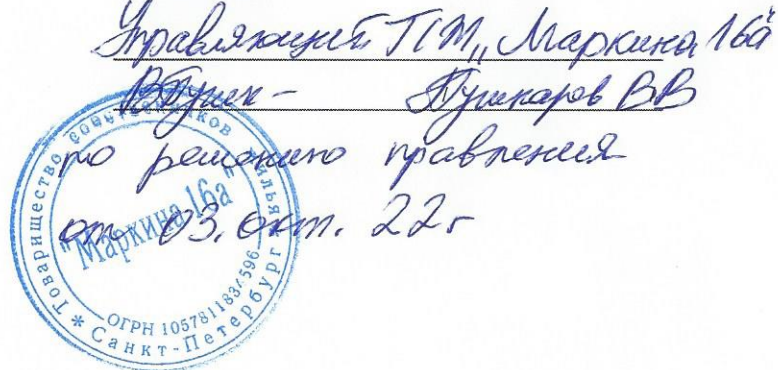 Управляющий ТСЖ „Маркина 16а"
Пушкарев ВВ
по решению правления
от 03. окт. 22г
Товарищество собственников жилья
"Маркина 16а"
ОГРН 1057811834596
* Санкт-Петербург